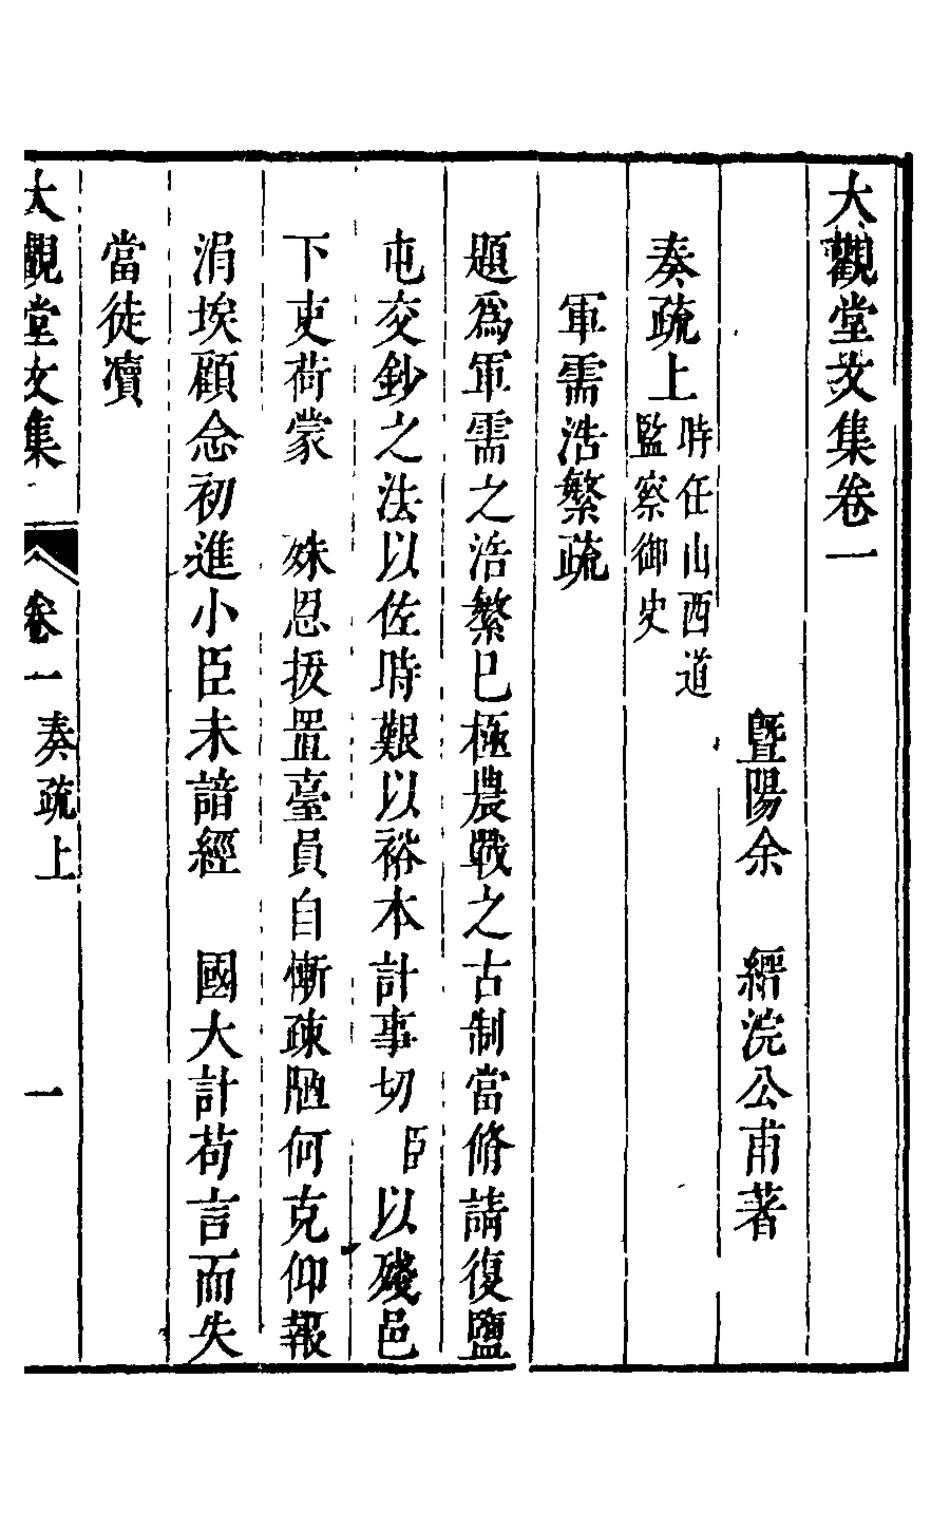 大觀堂文集卷一
暨陽余　縉浣公甫著
奏疏上
時任山西道
監察御史
軍需浩繁疏
題爲軍需之浩繁巳極農戰之古制當脩請復鹽
屯交鈔之法以佐時艱以裕本計事切臣以殘邑
下吏荷蒙　殊恩拔置臺員自慚疎陋何克仰報
涓埃顧念初進小臣未諳經　國大計茍言而失
當徒瀆
大觀堂文集
卷一
奏疏上
一